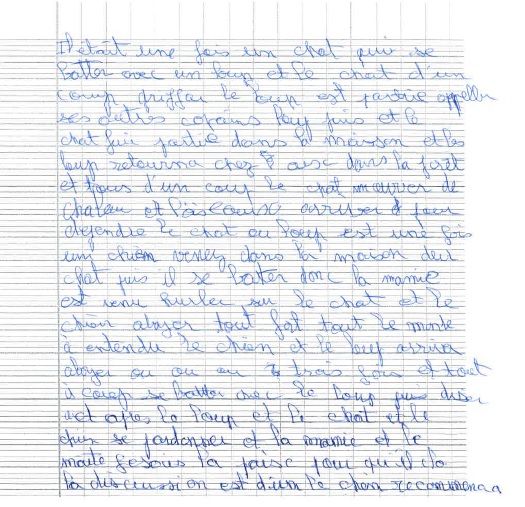 Il était une fois un chat qui se
batter avec un loup et le chat d'un
coup griffau le loup est partie appeller
ses autres copains loup puis et le
chat fui partie dans la maison et les
loup retourna chez dans la forêt
et tous d'un coup le chat mourrer de
chaleu et arriver pour
défendre le chat ou loup est une fois
um chien venez dans la maison deu
chat puis il se batter donc la mamie
est venu hurler sur le chat et le
chien aboyer tout fort tout le monde
à entendu le chien et le loup arriver
aboyer ou ou ou trois fois et tout
à coup se batter avec le loup puis diser
après le loup et le chat et le
se pardonner et la mamie et le
la pour qu'il
la discussion est d'um le chien recommença